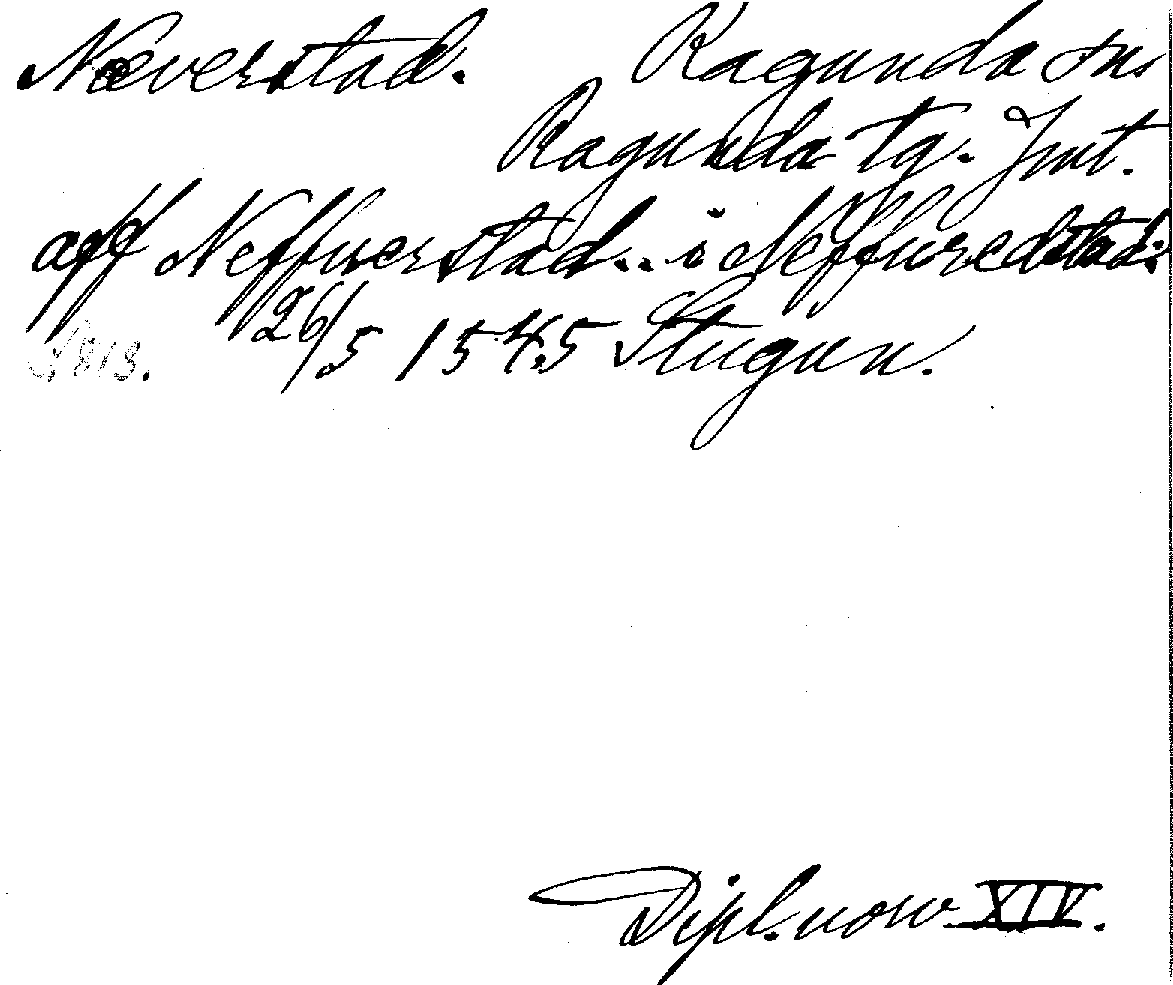 Næverstad. Ragunda sn.
Ragunda tg. Jmt.
aff Neffuerstad.. i Neffuredstad:
S. 813. 26/5 1545 Stugun.
Dipl. norv. XIV.